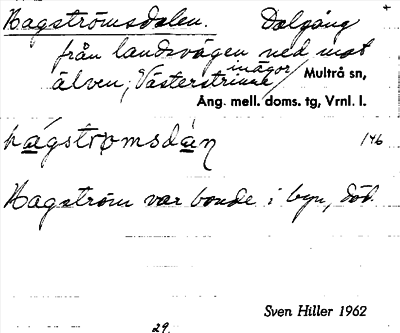 Hagströmsdalen. Dalgång
från landsvägen ned mot
älven, Västerstrinne inägor / Multrå sn,
Ång. mell. doms. tg, Vrnl. l.
hágstromsdàn 146
Hagström var bonde i byn, död.
Sven Hiller 1962
29.